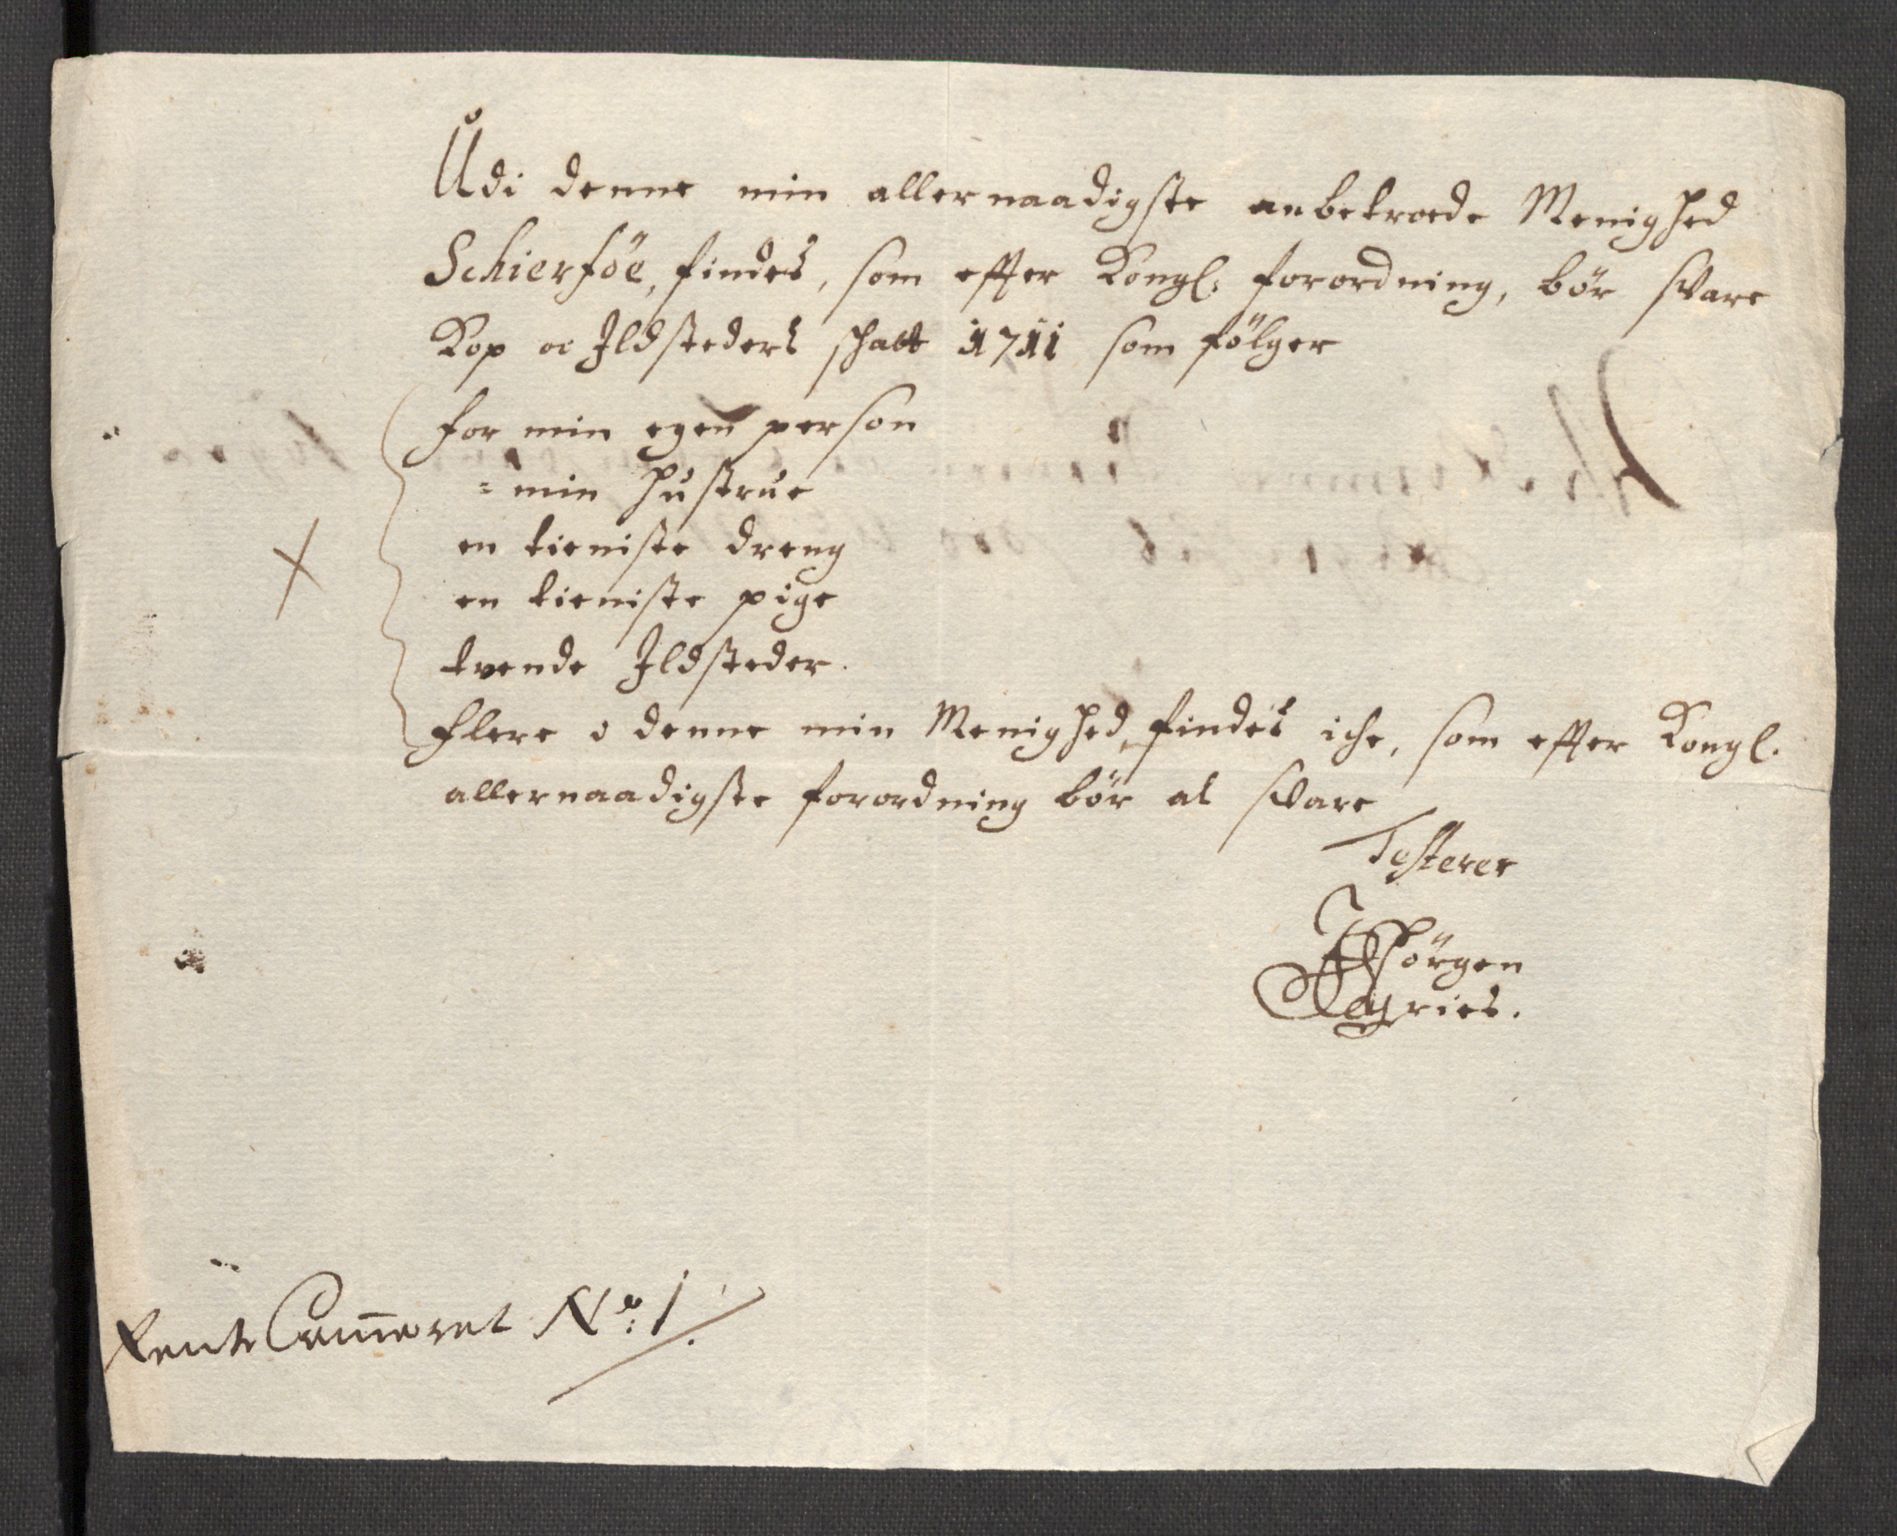 Udi denne min allernaadigste anbetroede Menighed
Schierföe, findes, som effter Kongl: forordning, bör svare
Kop oc Ildsteders schatt 1711 som fölger
for min egen person
= min hustrue
en tieniste dreng
en tieniste pige
tvende Ildsteder.
flere i denne min Menighed findes iche, som effter Kongl.
allernaadigste forordning bör at svare
Testerer
Jörgen
Rente Cammeret No: 1.